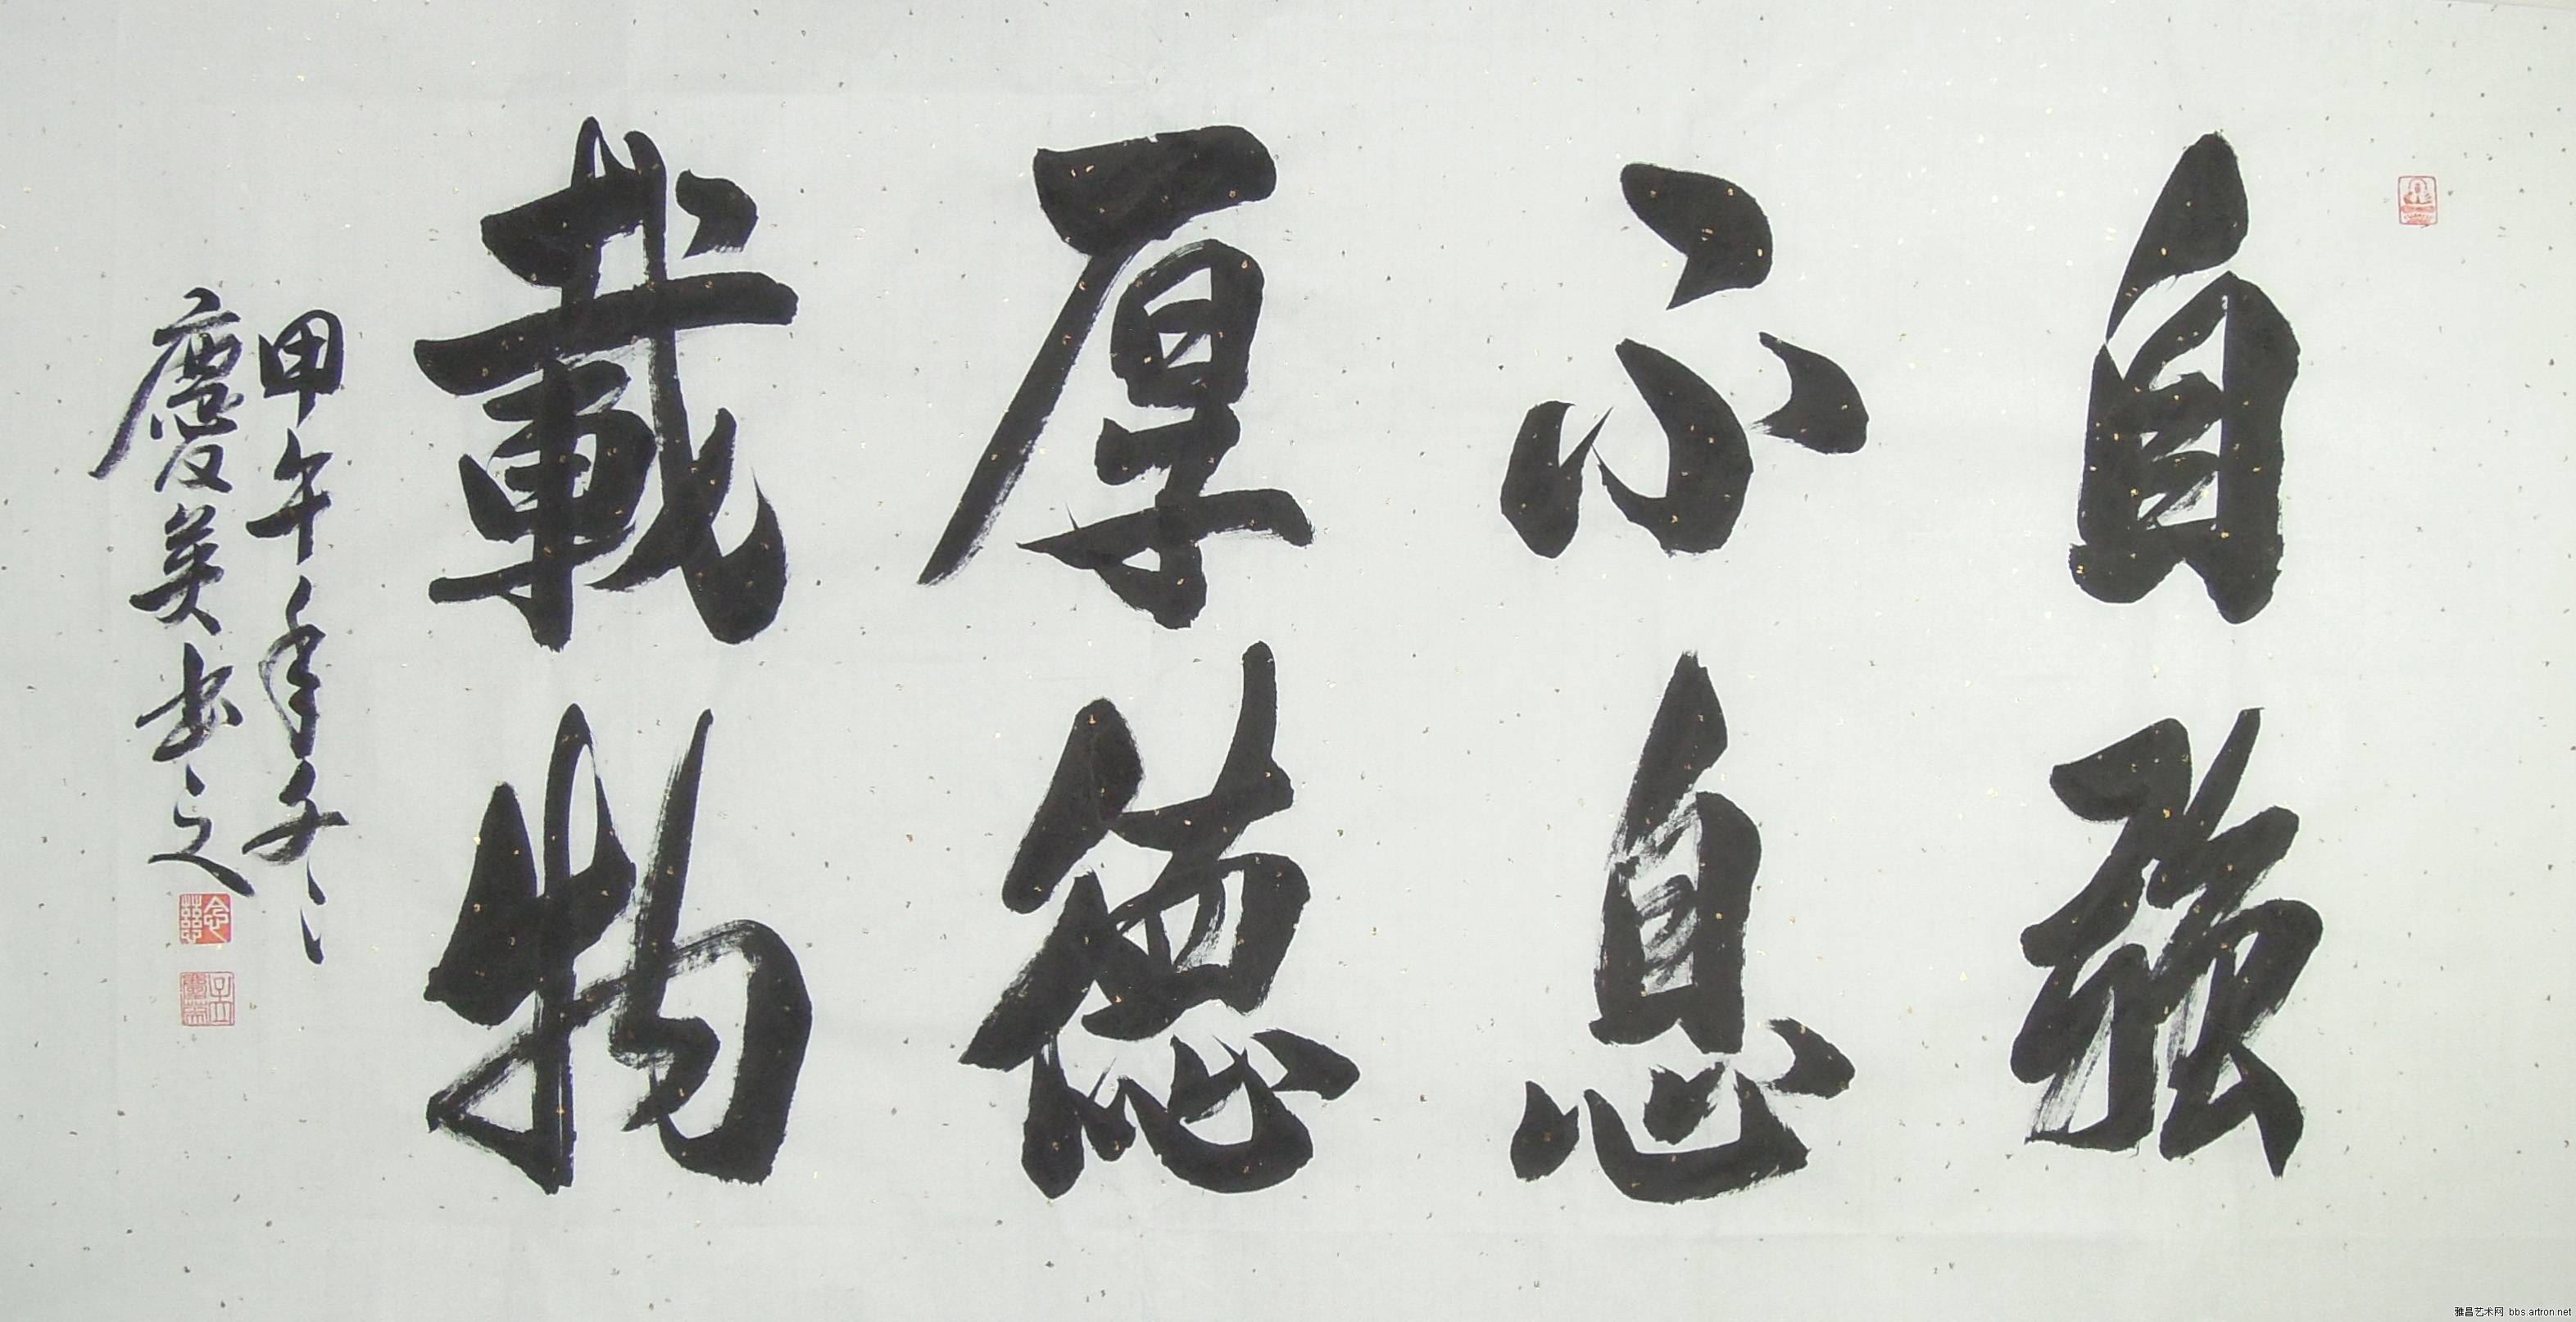 自強
不息
厚德
載物
甲午年冬
慶英书之
雅昌艺术网 bbs.artron.net